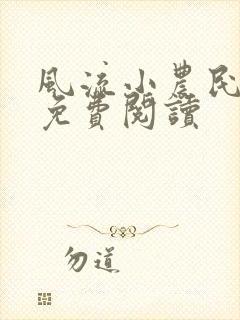 風流小農民
免費閱讀
勿道